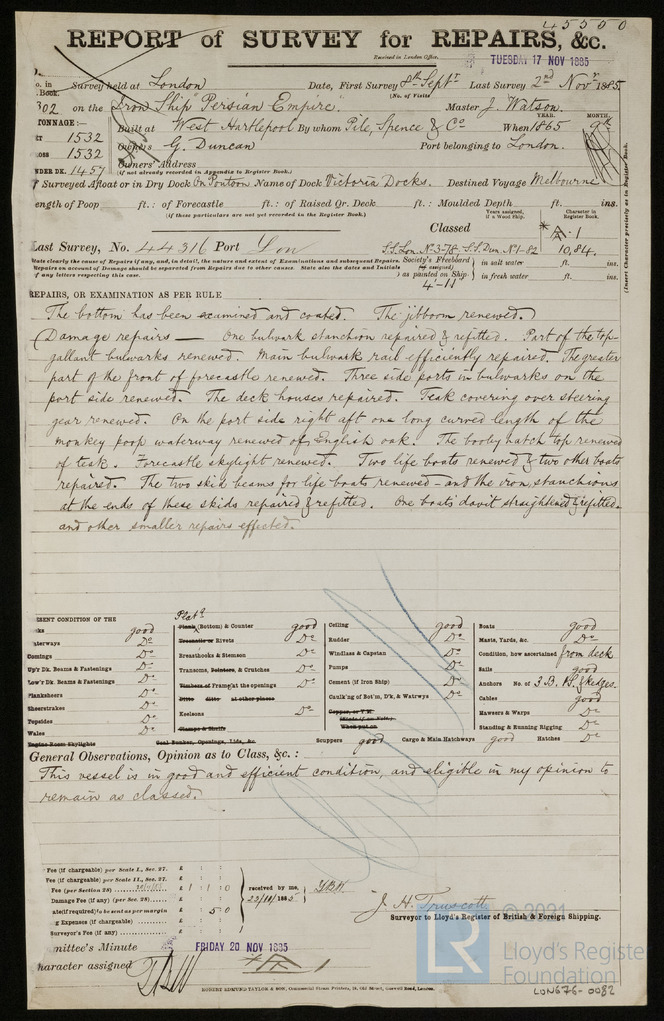 45500
REPORT of SURVEY for REPAIRS, &c.
Received in London Office,
TUESDAY 17 NOV 1885
o. in Survey held at London Date, First Survey 8th Septr Last Survey 2nd Novr 1885
. Book. (No. of Visits)
302 on the Iron Ship "Persian Empire. Master J. Watson.
TONNAGE:— YEAR. MONTH.
1532 Built at West Hartlepool By whom Pile, Spence & Co When 1865 9th
1532 Owners G. Duncan Port belonging to London.
Owners' Address
UNDER DK. 1457 (if not already recorded in Appendix to Register Book.)
Surveyed Afloat or in Dry Dock On Pontoon Name of Dock Victoria Docks. Destined Voyage Melbourne
ength of Poop ft.: of Forecastle ft.: of Raised Qr. Deck ft.: Moulded Depth ft. ins.
(if these particulars are not yet recorded in the Register Book.)
Years assigned, if a Wood Ship. Character in Register Book.
Classed A·1
Last Survey, No. 44316 Port Lon S.S.Lon. No 3-78, S.S.Dun. No 1-82 10,84.
State clearly the cause of Repairs if any, and, in detail, the nature and extent of Examinations and subsequent Repairs.
Repairs on account of Damage should be separated from Repairs due to other causes. State also the dates and Initials
of any letters respecting this case.
Society's Freeboard (if assigned) as painted on Ship 4'-11
in salt water ft. ins.
in fresh water ft. ins.
(Insert Character precisely as in Register Book.)
REPAIRS, OR EXAMINATION AS PER RULE
The bottom has been examined and coated. The jibboom renewed.
Damage repairs — One bulwark stanchion repaired & refitted. Part of the top-
gallant bulwarks renewed. Main bulwark rail efficiently repaired. The greater
part of the front of forecastle renewed. Three side ports in bulwarks on the
port side renewed. The deck houses repaired. Teak covering over steering
gear renewed. On the port side right aft one long curved length of the
monkey poop waterway renewed of English oak. The booby hatch top renewed
of teak. Forecastle skylight renewed. Two life boats renewed & two other boats
repaired. The two skid beams for life boats renewed - and the iron stanchions
at the ends of these skids repaired & refitted. One boats' davit straightened & refitted.
and other smaller repairs effected.
ESENT CONDITION OF THE
ks good
aterways Do
Comings Do
Up'r Dk. Beams & Fastenings Do
Low'r Dk. Beams & Fastenings Do
Planksheers Do
Sheerstrakes Do
Topsides Do
Wales Do
Engine Room Skylights
Plank (Bottom) & Counter good
Treenails or Rivets Do
Breasthooks & Stemson Do
Transoms, Pointers, & Crutches Do
Timbers of Frame at the openings Do
Ditto ditto at other places
Keelsons Do
Clamps & Shelfs
Coal Bunker, Openings, Lids, &c.
Ceiling good
Rudder Do
Windlass & Capstan Do
Pumps Do
Cement (if Iron Ship) Do
Caulk'ng of Bot'm, D'k, & Watrwys Do
Copper, or Y.M.
When put on
Scuppers good Cargo & Main Hatchways good Hatches Do
Boats good
Masts, Yards, &c. Do
Condition, how ascertained from deck
Sails good
Anchors No. of 3 B. 1 S. & Kedges.
Cables good
Hawsers & Warps Do
Standing & Running Rigging Do
General Observations, Opinion as to Class, &c.:
This vessel is in good and efficient condition, and eligible in my opinion to
remain as classed.
Fee (if chargeable) per Scale I., Sec. 27. £ : :
Fee (if chargeable) per Scale II., Sec. 27. £ : :
Fee (per Section 28) £ 1 : 1 : 0
Damage Fee (if any) (per Sec. 28) £ : :
ate (if required) to be sent as per margin 5 0
g Expenses (if chargeable) £ : :
Surveyor's Fee (if any) £ : :
received by me,
J. H. Truscott
Surveyor to Lloyd's Register of British & Foreign Shipping.
mmittee's Minute FRIDAY 20 NOV 1885
haracter assigned
ROBERT EDMUND TAYLOR & SON, Commercial Steam Printers, 19, Old Street, Goswell Road, London.
© 2021
LR
Lloyd's Register
Foundation
LON676-0082